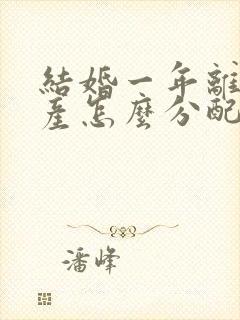 結婚一年離
産怎麼分配
潘峰